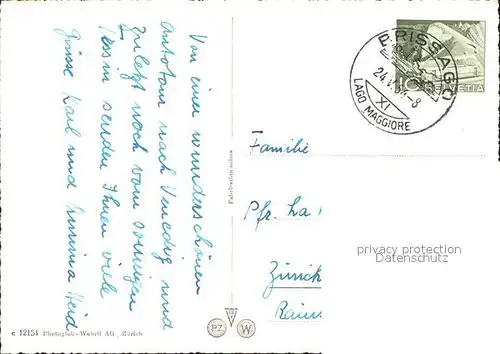 Von einer wunderschönen
Autotour nach Venedig und
zuletzt noch vom sonnigen
Tessin senden Ihnen viele
Grüsse Karl und Heid
Fabrikation suisse
c 12154 Photoglob-Wehrli AG., Zürich
PZ W
BRISSAGO
24.V. -8
XI
LAGO MAGGIORE
HELVETIA
10
Familie
Pfr. La
Zürich
Rain
privacy protection
Datenschutz